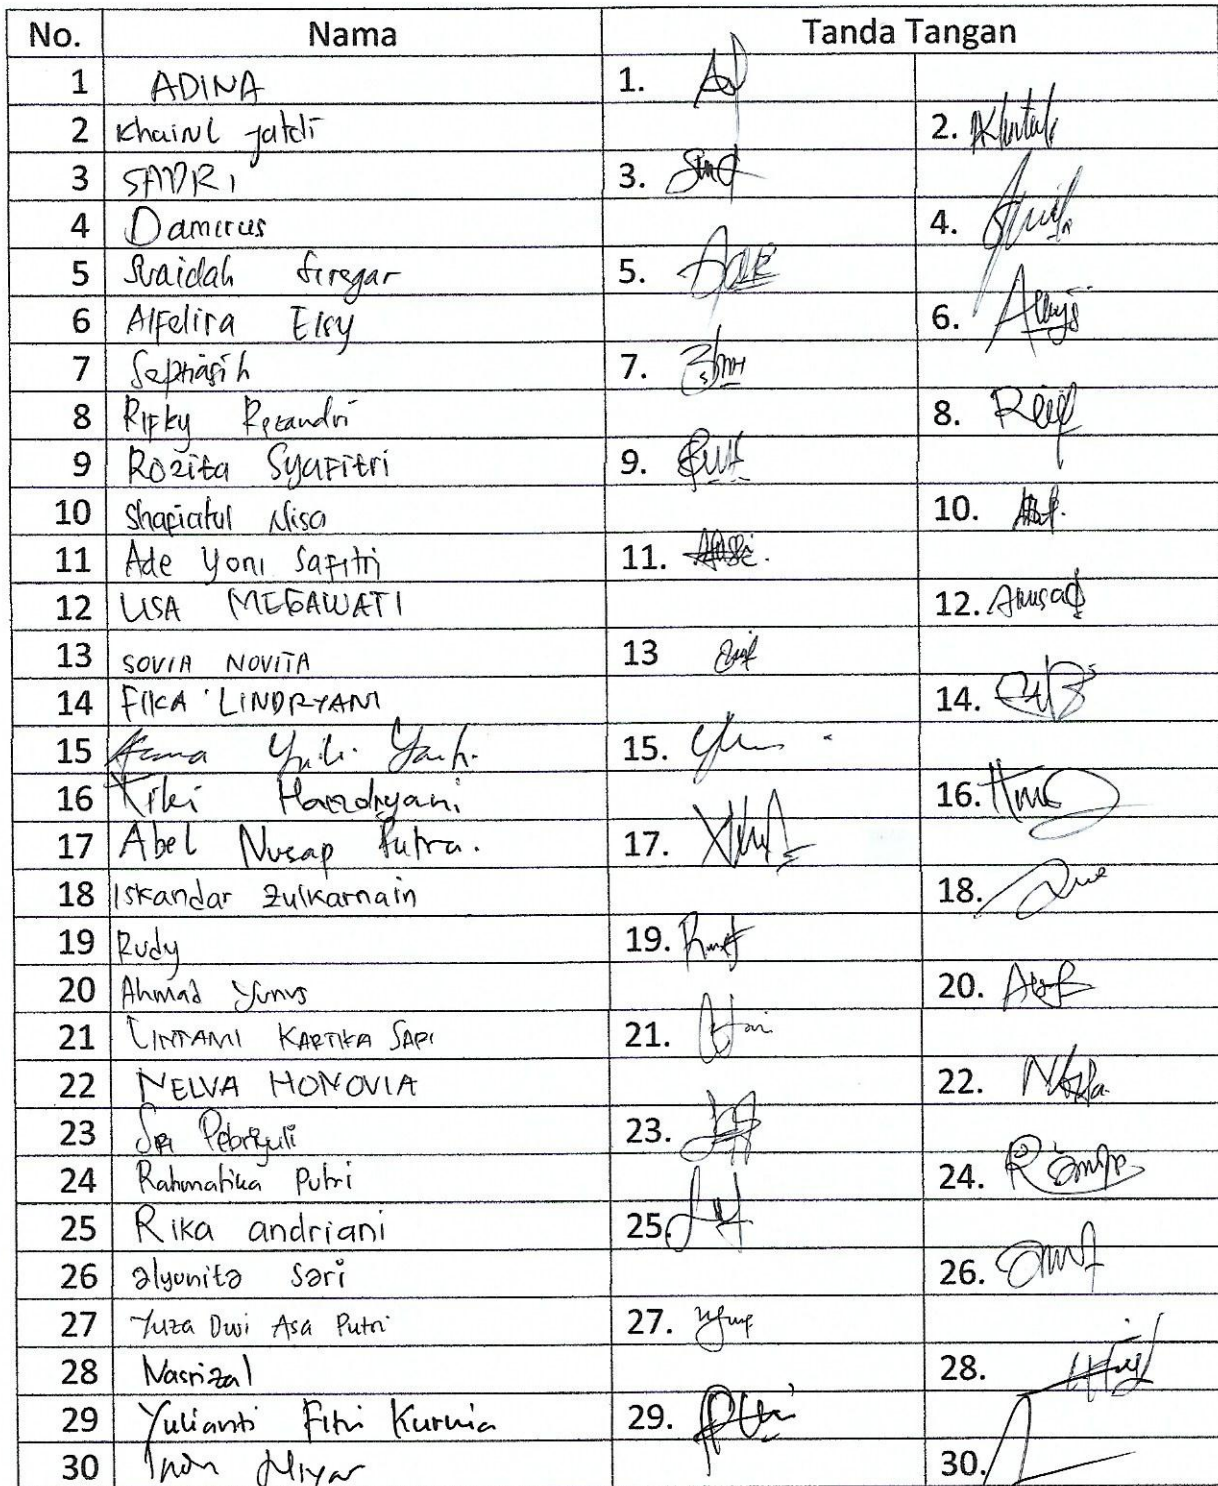 No. Nama Tanda Tangan
1 ADINA 1.
2 Khairul 2.
3 SADRI 3.
4 Damirus 4.
5 Suaidah Siregar 5.
6 Alfelira Elsy 6.
7 Septiasih 7.
8 Rifky Rezandri 8.
9 Rozita Syafitri 9.
10 Shafiatul Nisa 10.
11 Ade Yoni Safitri 11.
12 LISA MEGAWATI 12.
13 SOVIA NOVITA 13
14 FIKA LINDRYANI 14.
15 Yuli 15.
16 Kiki Handryani 16.
17 Abel Nusap Putra. 17.
18 Iskandar Zulkarnain 18.
19 Rudy 19.
20 Ahmad Yunus 20.
21 LINTAMI KARTIKA SARI 21.
22 NELVA HONOVIA 22.
23 Sri Pebriyuli 23.
24 Rahmatika Putri 24.
25 Rika andriani 25.
26 alyunita sari 26.
27 Yuza Dwi Asa Putri 27.
28 Nasrizal 28.
29 Yulianti Fitri Kurnia 29.
30 30.